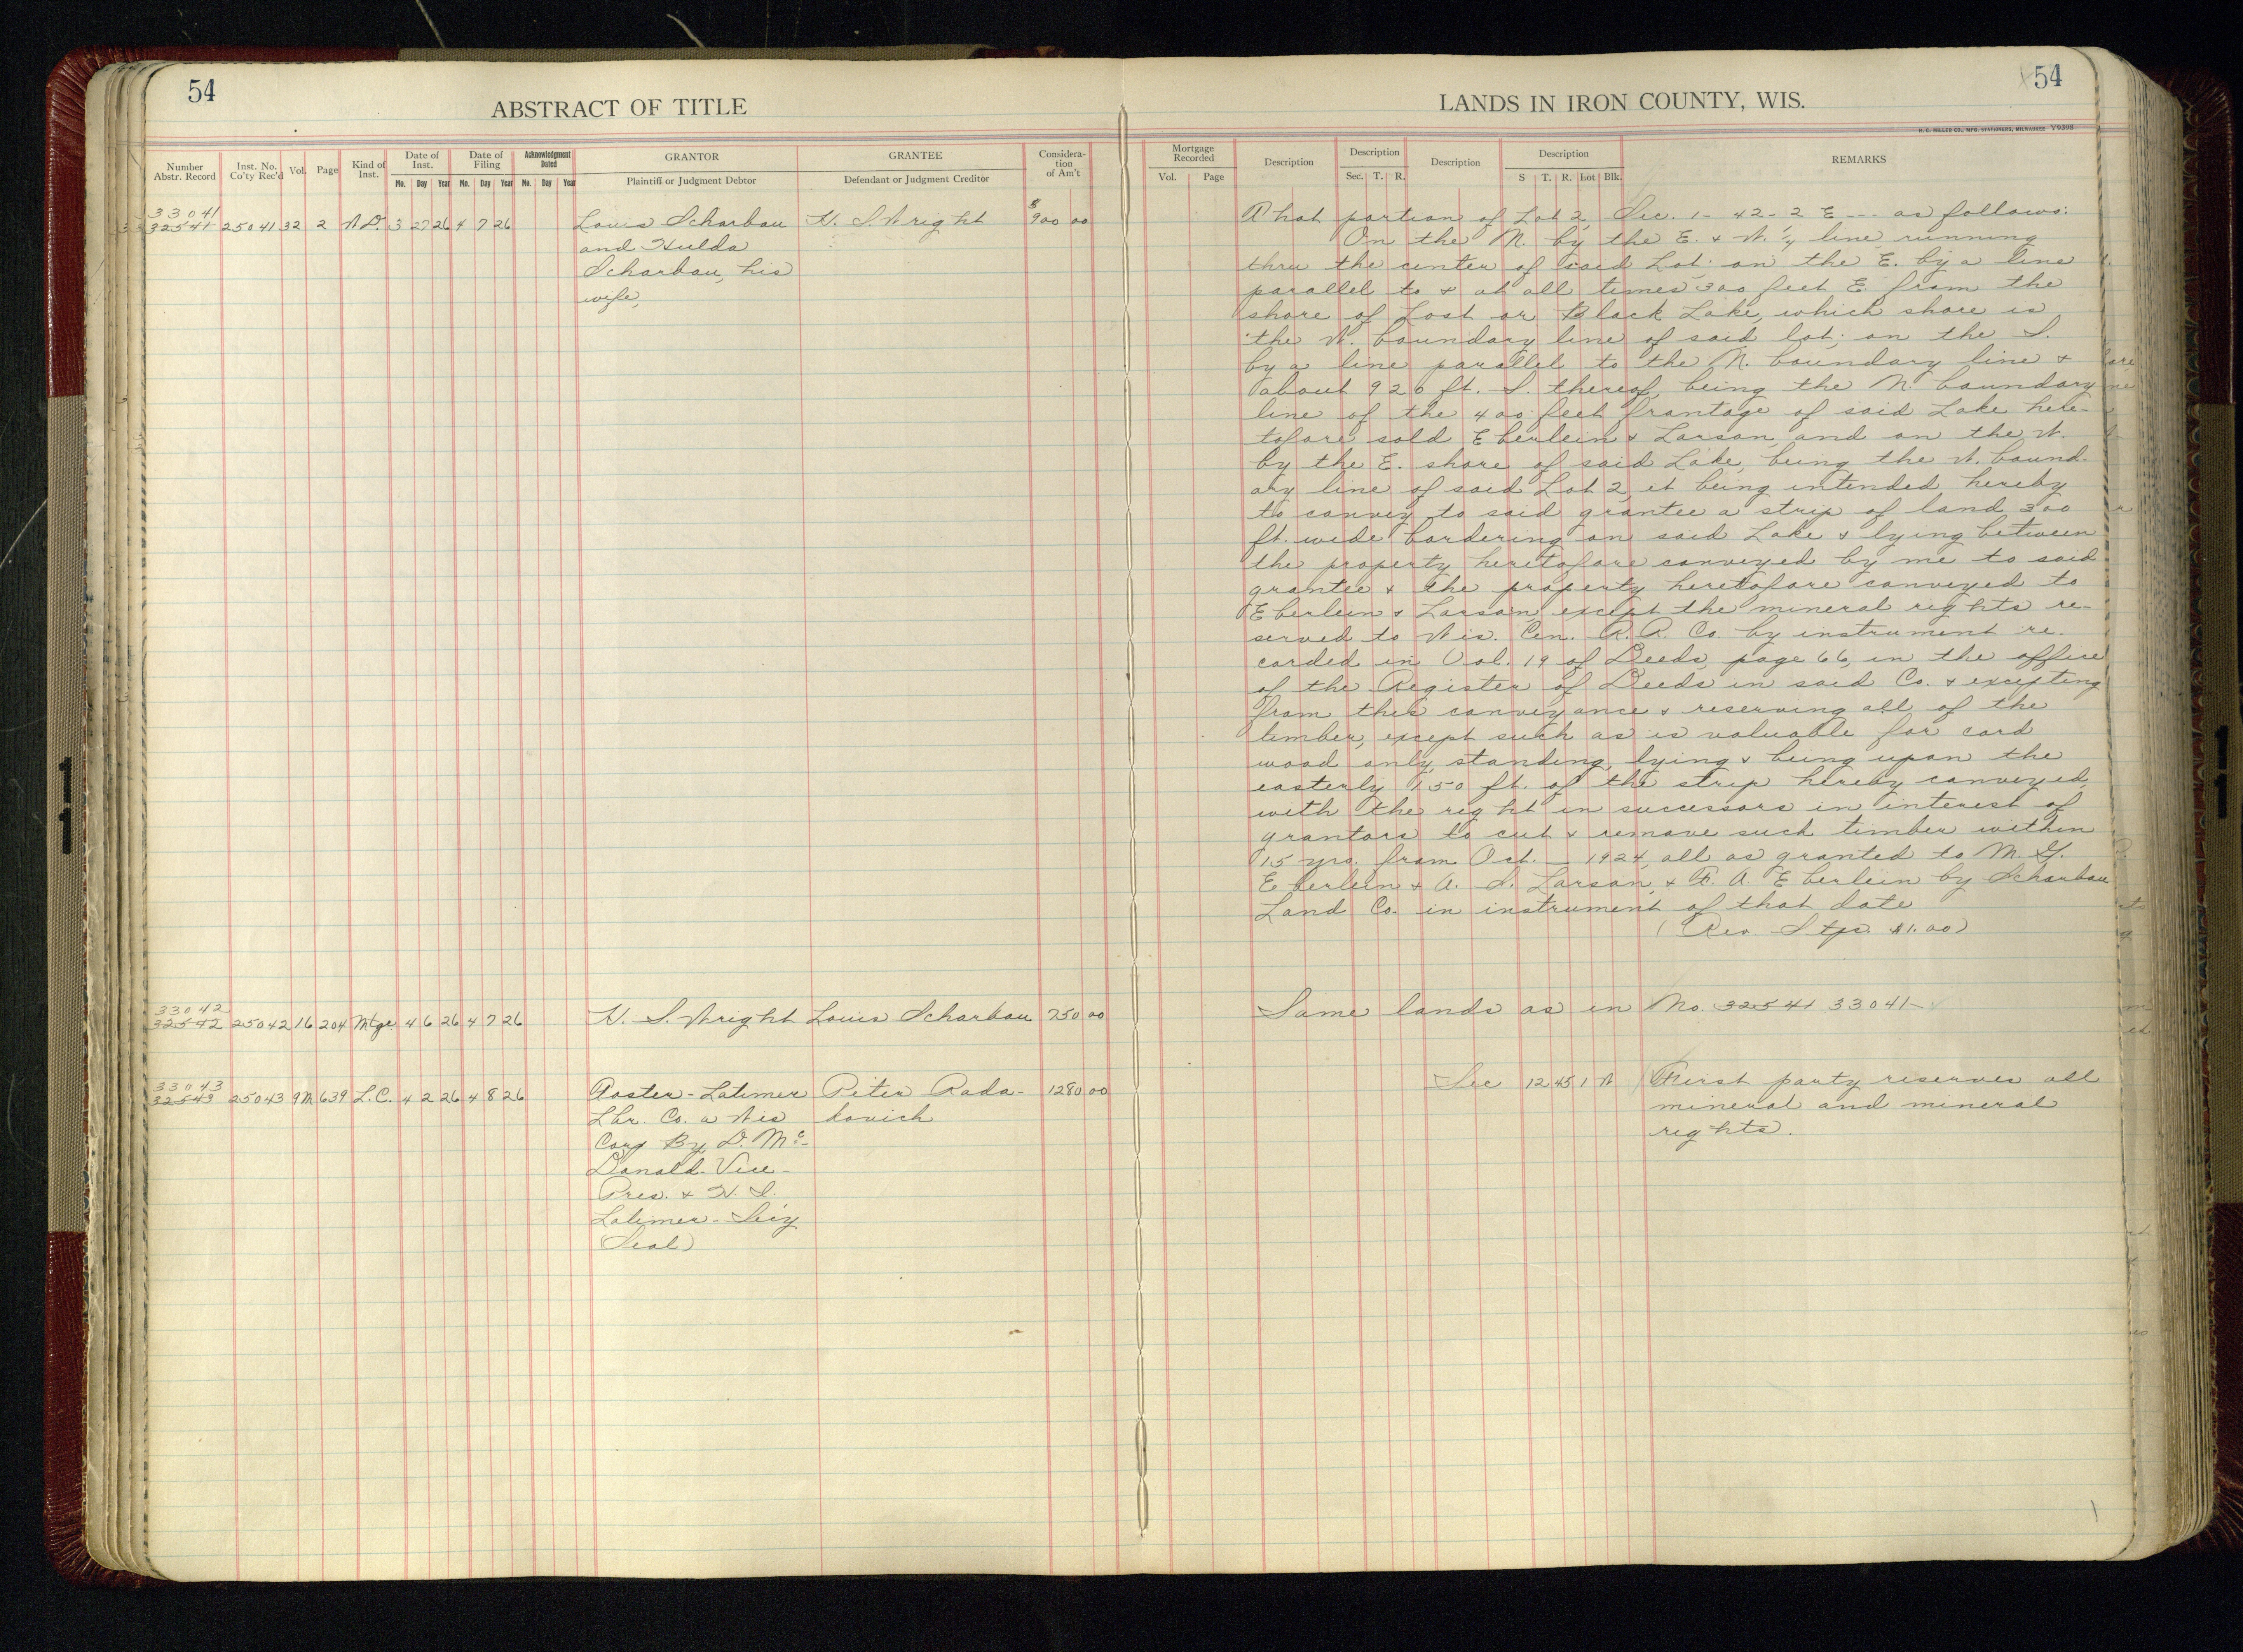 54
ABSTRACT OF TITLE
Number Abstr. Record
Inst. No. Co'ty Rec'd
Vol.
Page
Kind of Inst.
Date of Inst.
Mo. Day Year
Date of Filing
Mo. Day Year
Acknowledgment Dated
Mo. Day Year
GRANTOR
Plaintiff or Judgment Debtor
GRANTEE
Defendant or Judgment Creditor
Considera-tion of Am't
33041
32541 25041 32 2 W.D. 3 27 26 4 7 26 Louis Scharbau H. S. Wright $900 00
and Hulda
Scharbau, his
wife,
33042
32542 25042 16 204 Mtge 4 6 26 4 7 26 H. S. Wright Louis Scharbau 750 00
33043
32543 25043 9M 639 L.C. 4 2 26 4 8 26 Roster-Latimer Peter Rada- 1280 00
Lbr. Co. a Wis kovich
Corp By D. Mc-
Donald-Vice-
Pres. & H. S.
Latimer-Sec'y
(Seal)
54
LANDS IN IRON COUNTY, WIS.
H. C. MILLER CO., MFG. STATIONERS, MILWAUKEE Y9398
Mortgage Recorded
Vol. Page
Description
Description
Sec. T. R.
Description
Description
S T. R. Lot Blk.
REMARKS
That portion of Lot 2, Sec. 1-42-2 E --- as follows:
On the N. by the E. & W. 1/4 line running
thru the center of said Lot; on the E. by a line
parallel to & at all times 300 feet E. from the
shore of Lost or Black Lake, which shore is
the W. boundary line of said lot; on the S.
by a line parallel to the N. boundary line &
about 920 ft. S. thereof, being the N. boundary
line of the 400 feet frontage of said Lake here-
tofore sold Eberlein & Larson, and on the W.
by the E. shore of said Lake, being the W. bound-
ary line of said Lot 2, it being intended hereby
to convey to said grantee a strip of land 300
ft. wide bordering on said Lake & lying between
the property heretofore conveyed by me to said
grantee & the property heretofore conveyed to
Eberlein & Larson except the mineral rights re-
served to Wis. Cen. R. R. Co. by instrument re-
corded in Vol. 19 of Deeds, page 66, in the office
of the Register of Deeds in said Co. & excepting
from this conveyance & reserving all of the
timber, except such as is valuable for cord
wood only, standing, lying & being upon the
easterly 150 ft. of the strip hereby conveyed,
with the right in successors in interest of
grantors to cut & remove such timber within
15 yrs. from Oct. — 1924, all as granted to M. G.
Eberlein & A. L. Larson, & F. A. Eberlein by Scharbau
Land Co. in instrument of that date
(Rev Stps. $1.00)
Same lands as in No. 32541 33041
See 12 45 1 W First party reserves all
mineral and mineral
rights.